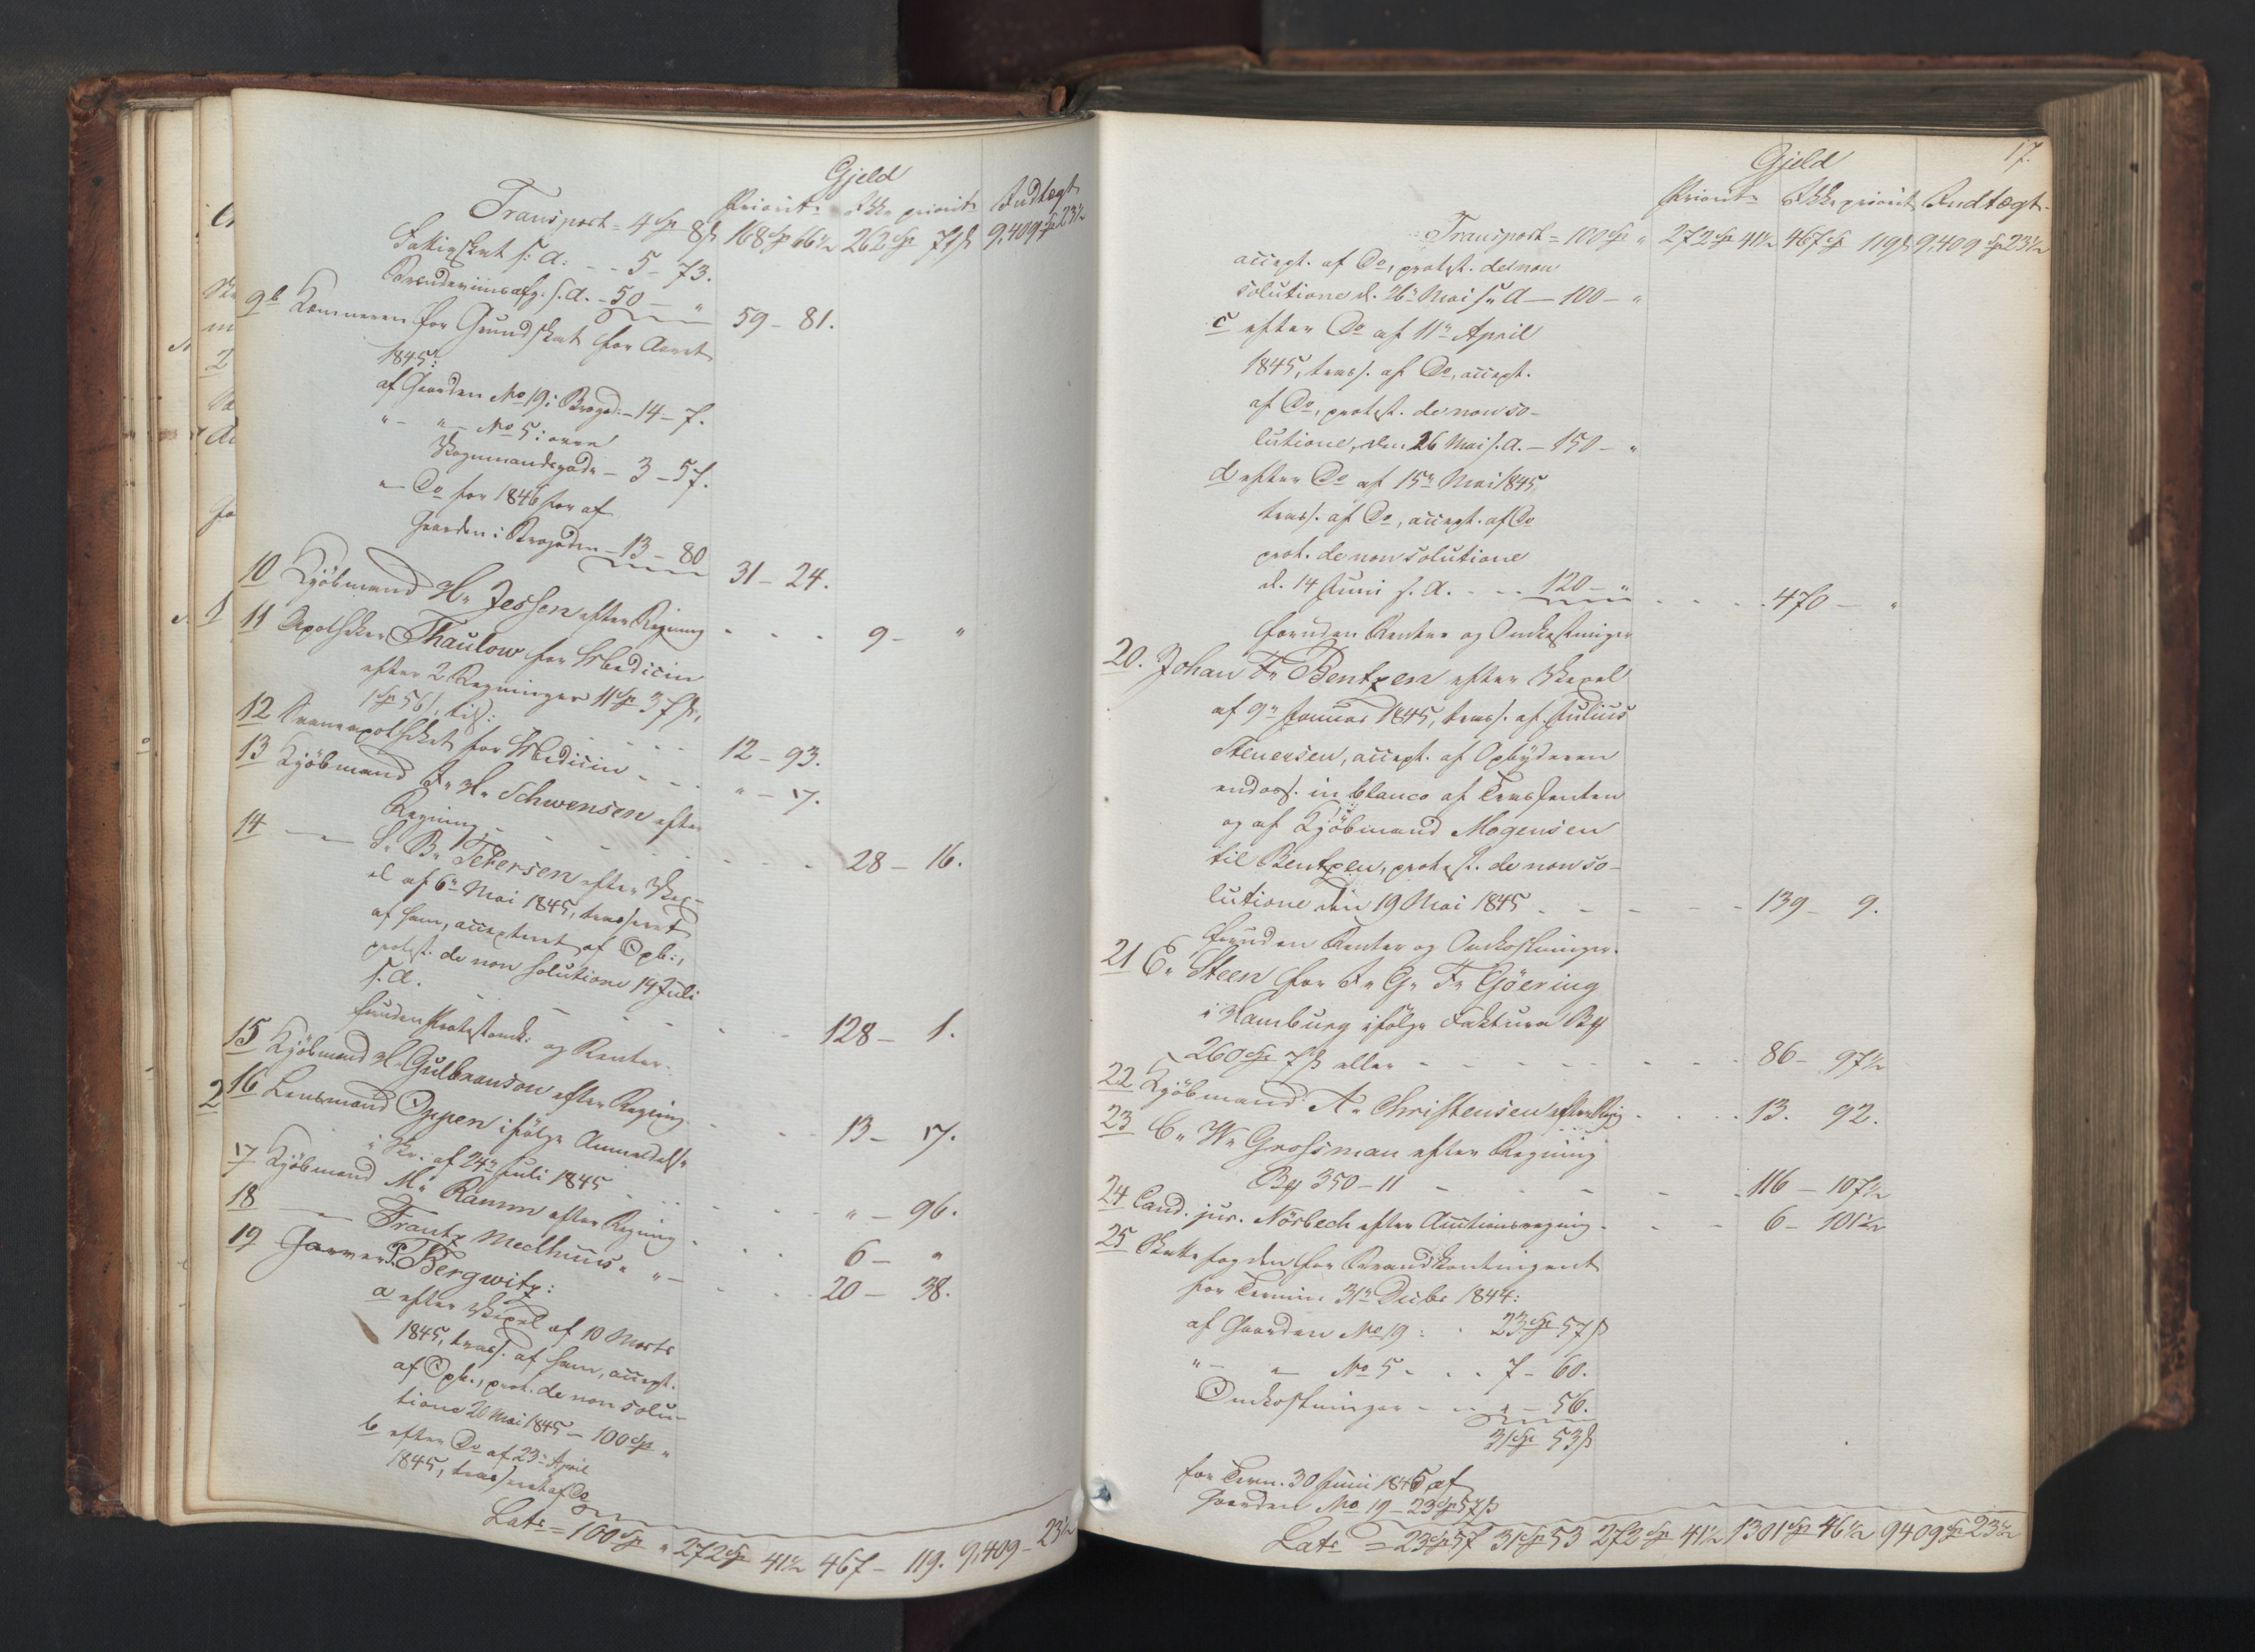 Gjeld
Priorit. Ikke priorit. Indtægt
Transport = 4 Sp 8ß 168 Sp 66½ 262 Sp 71ß 9,409 Sp 23½
Fattigskat f. A. - - 5 - 73.
f. A. - 50 - " 59 - 81.
9b Kæmneren for Grundskat for Aaret
1845:
af Gaarden No 19 i Brogad. - 14 - 7.
" - " - No 5 i øvre
Vognmandsgade - 3 - 57.
" - Do for 1846 for af
Gaarden i Brogaden - 13 - 80 31 - 24.
10 Kjøbmand H. Jessen efter Regning - - - 9 - "
11 Apotheker Thaulow for Medicin
efter 2 Regninger 11 Sp 37ß,
1 Sp 56ß, tils: - - - - 12 - 93.
12 Svaneapotheket for Medicin - - " - 17.
13 Kjøbmand F. H. Schwensen efter
Regning - - - - - 28 - 16.
14 - " - S. B. Petersen efter Vex-
el af 6. Mai 1845, trasseret
af ham, accepteret af Opb.,
protest. de non solutione 14 Juli
s. A. - - - - - 128 - 1.
foruden Protestomk. og Renter.
15 Kjøbmand H. Gulbranson efter Regning - - 13 - 17.
2 16 Lensmand Oppen ifølge Anmeldelse
i Skr. af 24. Juli 1845 - - - " - 96.
17 Kjøbmand M. Ramm efter Regning - - - 6 - "
18 - " - Frantz Melhuus " " - - - 20 - 38.
19 Garver P. Bergwitz:
a efter Vexel af 10 Marts
1845, trass. af ham, accept.
af Opb., prot. de non solu-
tione 20 Mai 1845 - 100 Sp "
b efter Do af 23. April
1845, trasseret af Do
Late = 100 Sp " 272 Sp 41½ 467 - 119. 9,409 - 23½
17.
Gjeld
Priorit. Ikke priorit. Indtægt.
Transport = 100 Sp " 272 Sp 41½ 467 Sp 119ß 9,409 Sp 23½
accept. af Do, protest. de non
solutione d. 26. Mai s. A - 100 - "
c efter Do af 11. April
1845, trass. af Do, accept.
af Do, protest. de non so-
lutione, den 26 Mai s. A. - 150 - "
d efter Do af 15. Mai 1845,
trass. af Do, accept. af Do
prot. de non solutione
d. 14 Juni s. A. - - 120 - " - - - 470 - "
foruden Renter og Omkostninger
20. Johan Fr. Bentzen efter Vexel
af 9. Januar 1845, trass. af Julius
Stenersen, accept. af Opbyderen
endoss. in blanco af Trassenten
og af Kjøbmand Mogensen
til Bentzen, protest. de non so-
lutione den 19 Mai 1845 - - - - - 139 - 9.
foruden Renter og Omkostninger.
21 E. Steen for F. G. F. Göering
i Hamburg ifølge Faktura
260 7ß eller - - - - - - - 86 - 97½
22 Kjøbmand A. Christensen efter Regng - - - 13. 92.
23 C. W. Grossman efter Regning
350 - 11 - - - - 116 - 107½
24 Cand. jur. Nörbech efter Auctionsregning - - - 6 - 101½
25 Skattefogden for Brandkontingent
for Termin 31. Decbr 1844:
af Gaarden No 19: - 23 Sp 57ß
" - " - No 5 - - - 7 - 60.
Omkostninger - - " - 56.
31 Sp 53ß
for Term. 30 Juni 1845 af
Gaarden No 19 - 23 Sp 57ß
Late = 23 Sp 57 31 Sp 53 272 Sp 41½ 1301 Sp 46½ 9409 Sp 23½